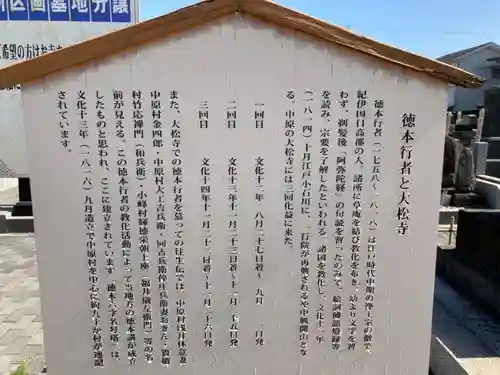 新区画墓地分譲
ご希望の方はお寺
徳本行者と大松寺
徳本行者（一七五八～一八一八）は江戸時代中期の浄土宗の僧で、
紀伊国日高郡の人、諸所に草庵を結び教化を布き、幼より文を
わず、剃髪後「阿弥陀経」の句読を習ったのみで、
を読み、宗要を了解したといわれる。諸国を教化し、文化十一年
（一八一四）十月江戸小石川に、一行院が再興されるや中興開山とな
る。中原の大松寺には三回化益に来た。
一回目　文化十二年　八月二十七日着～九月　一日発
二回目　文化十三年十一月二十三日着～十一月二十五日発
三回目　文化十四年十一月二十二日着～十一月二十六日発
また、大松寺での徳本行者を慕っての往生伝では、中原村浅井休意妻
中原村金四郎・中原村大工吉兵衛・同吉兵衛伜庄兵衛妻おきん・
村竹応禅門（和兵衛）・小峰村輝徳栄朝上座（福井儀左衛門）等の名
前が見える。この徳本行者の教化活動によって当地方の徳本講が成立
したものと思われ、ここに建立されています「徳本六字名号塔」は、
文化十三年（一八一六）九月造立で中原村を中心に約九十カ村が連記
されています。